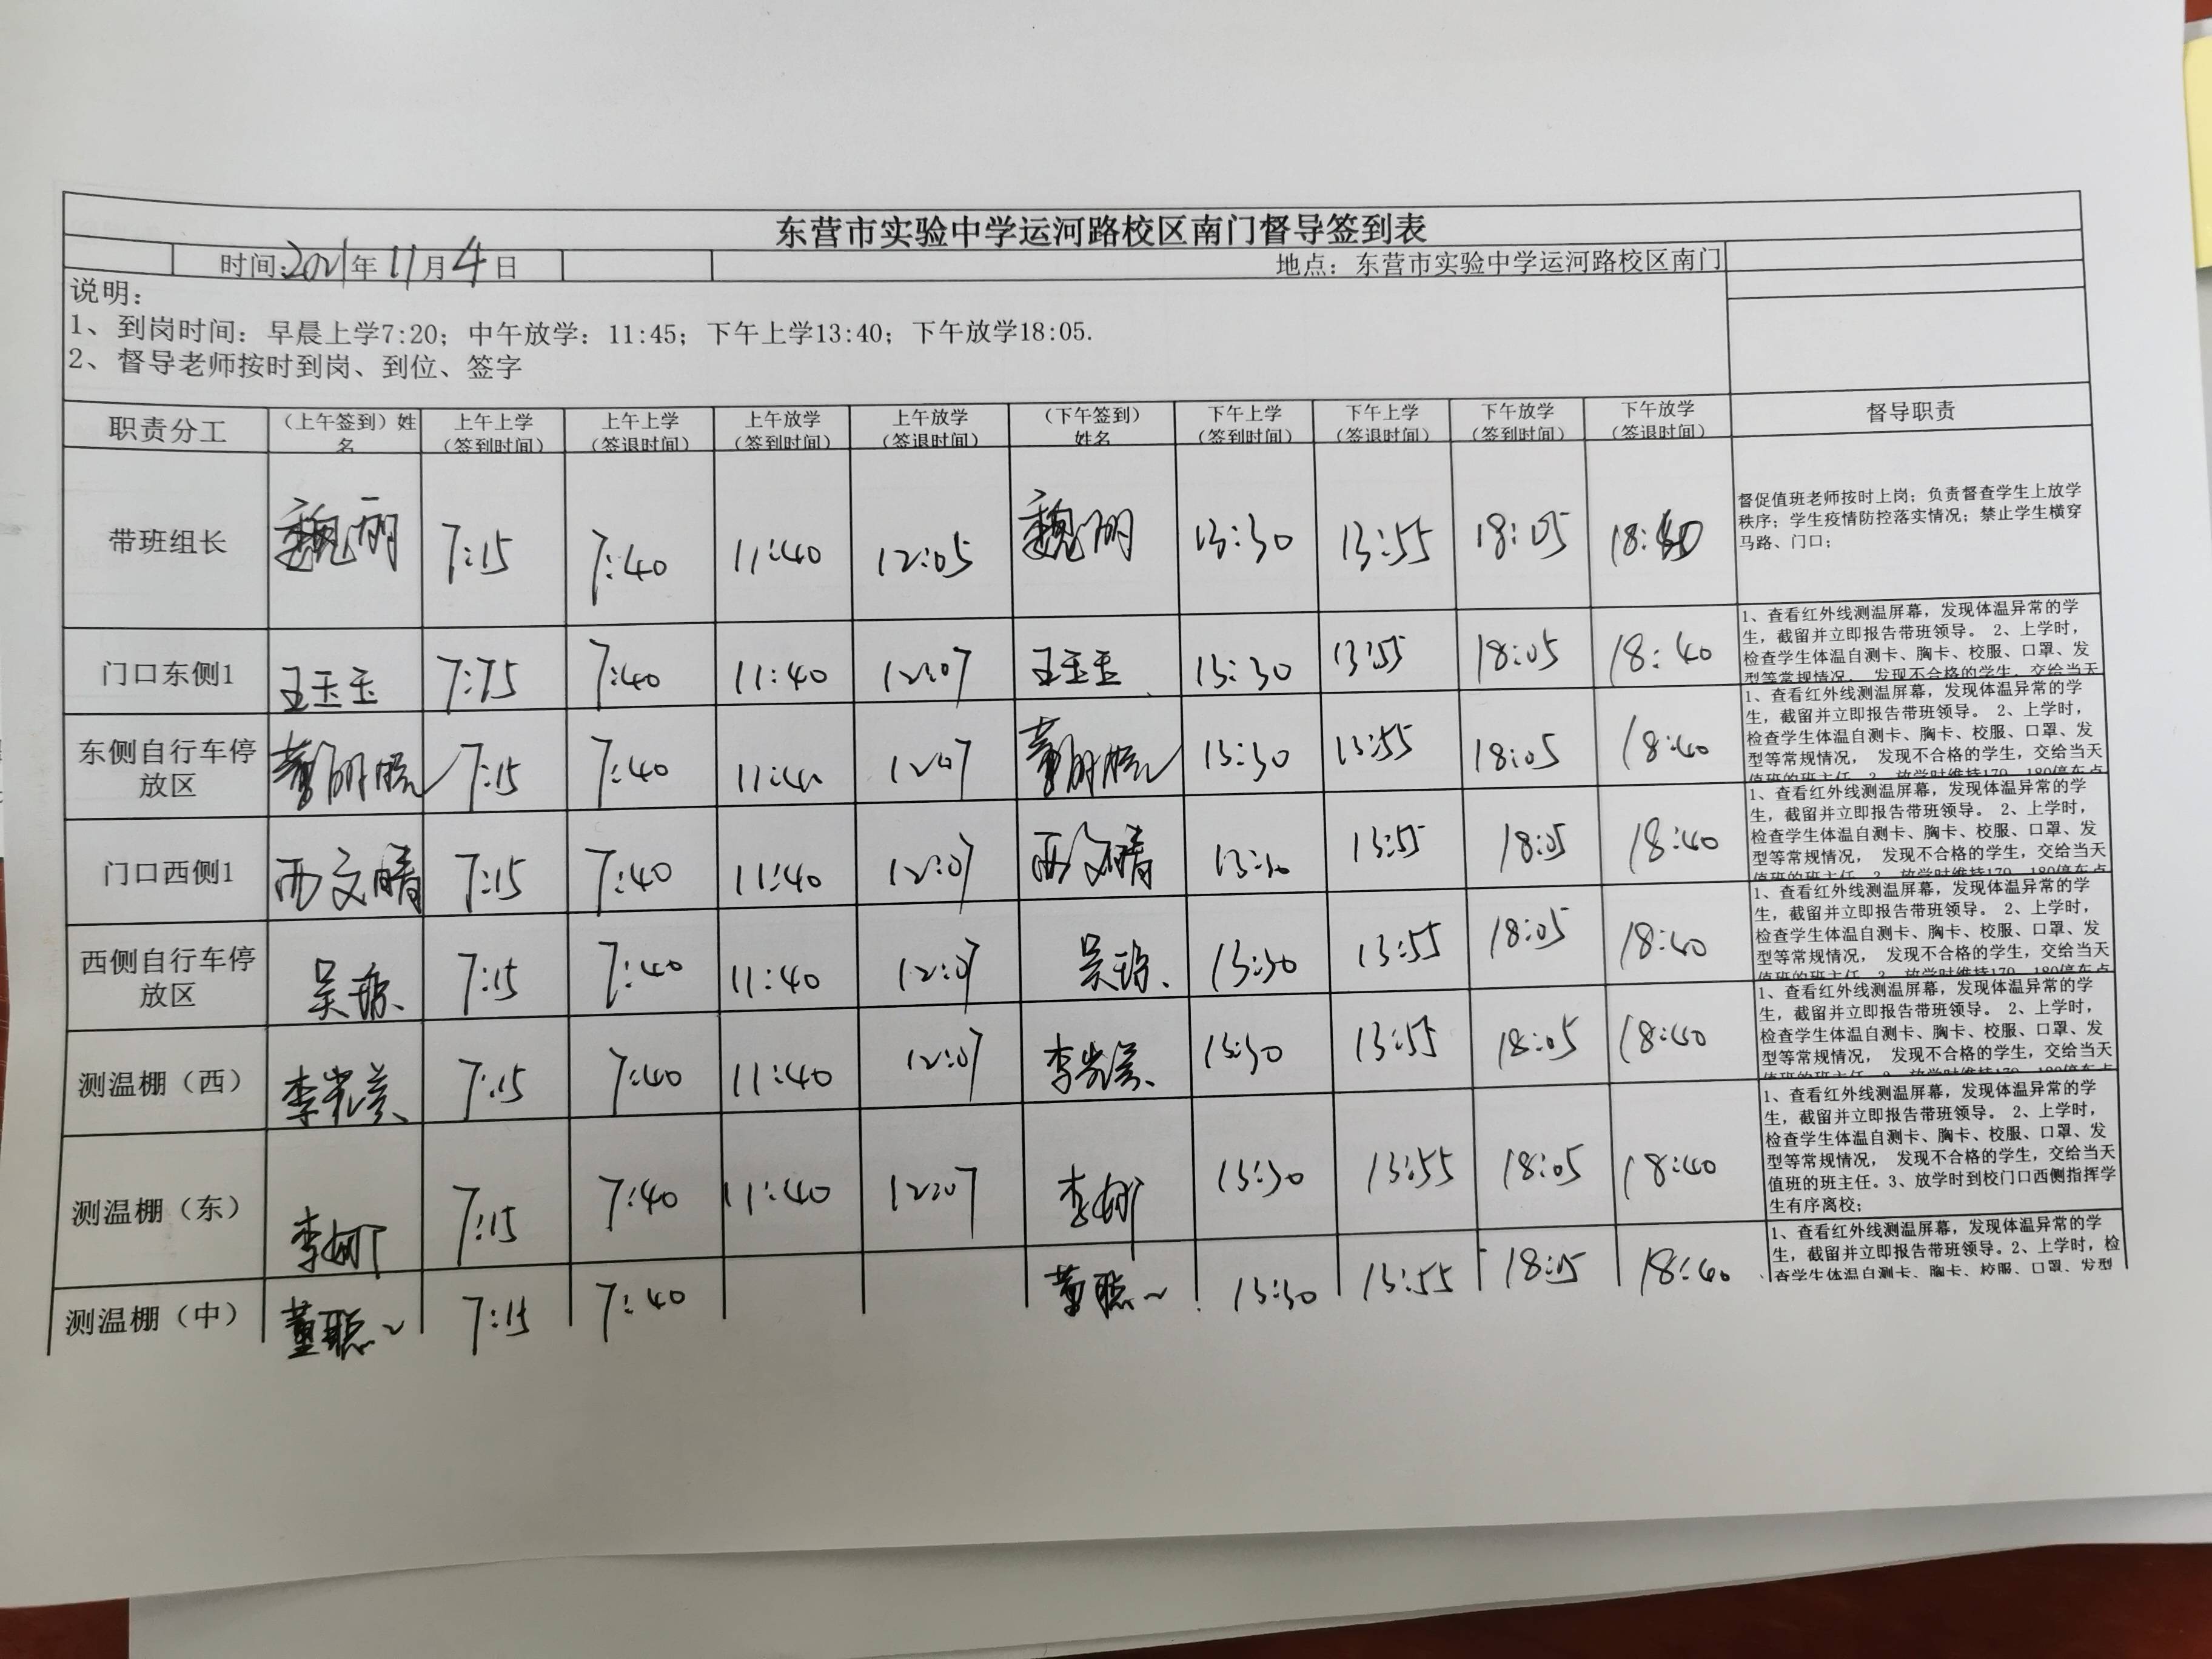 东营市实验中学运河路校区南门督导签到表
时间:2021年11月4日 地点：东营市实验中学运河路校区南门
说明：
1、到岗时间：早晨上学7:20；中午放学：11:45；下午上学13:40；下午放学18:05.
2、督导老师按时到岗、到位、签字
职责分工 （上午签到）姓名 上午上学（签到时间） 上午上学（签退时间） 上午放学（签到时间） 上午放学（签退时间） （下午签到）姓名 下午上学（签到时间） 下午上学（签退时间） 下午放学（签到时间） 下午放学（签退时间） 督导职责
带班组长 魏丽 7:15 7:40 11:40 12:05 魏丽 13:30 13:55 18:05 18:40
督促值班老师按时上岗；负责督查学生上放学
秩序；学生疫情防控落实情况；禁止学生横穿
马路、门口；
门口东侧1 王玉玉 7:15 7:40 11:40 12:07 王玉玉 13:30 13:55 18:05 18:40
1、查看红外线测温屏幕，发现体温异常的学
生，截留并立即报告带班领导。 2、上学时，
检查学生体温自测卡、胸卡、校服、口罩、发
型等常规情况， 发现不合格的学生，交给当天
东侧自行车停
放区 7:15 7:40 11:40 12:07 13:30 13:55 18:05 18:40
1、查看红外线测温屏幕，发现体温异常的学
生，截留并立即报告带班领导。 2、上学时，
检查学生体温自测卡、胸卡、校服、口罩、发
型等常规情况， 发现不合格的学生，交给当天
值班的班主任。3、放学时维持179、180停车点
门口西侧1 西文晴 7:15 7:40 11:40 12:07 西文晴 13:30 13:55 18:05 18:40
1、查看红外线测温屏幕，发现体温异常的学
生，截留并立即报告带班领导。 2、上学时，
检查学生体温自测卡、胸卡、校服、口罩、发
型等常规情况， 发现不合格的学生，交给当天
值班的班主任。3、放学时维持179、180停车点
西侧自行车停
放区 吴琼 7:15 7:40 11:40 12:07 吴琼 13:30 13:55 18:05 18:40
1、查看红外线测温屏幕，发现体温异常的学
生，截留并立即报告带班领导。 2、上学时，
检查学生体温自测卡、胸卡、校服、口罩、发
型等常规情况， 发现不合格的学生，交给当天
值班的班主任。3、放学时维持179、180停车点
测温棚（西） 7:15 7:40 11:40 12:07 13:30 13:55 18:05 18:40
1、查看红外线测温屏幕，发现体温异常的学
生，截留并立即报告带班领导。 2、上学时，
检查学生体温自测卡、胸卡、校服、口罩、发
型等常规情况， 发现不合格的学生，交给当天
值班的班主任。3、放学时维持179、180停车点
测温棚（东） 李娜 7:15 7:40 11:40 12:07 李娜 13:30 13:55 18:05 18:40
1、查看红外线测温屏幕，发现体温异常的学
生，截留并立即报告带班领导。 2、上学时，
检查学生体温自测卡、胸卡、校服、口罩、发
型等常规情况， 发现不合格的学生，交给当天
值班的班主任。3、放学时到校门口西侧指挥学
生有序离校；
测温棚（中） 董聪 7:15 7:40 董聪 13:30 13:55 18:05 18:40
1、查看红外线测温屏幕，发现体温异常的学
生，截留并立即报告带班领导。2、上学时，检
查学生体温自测卡、胸卡、校服、口罩、发型